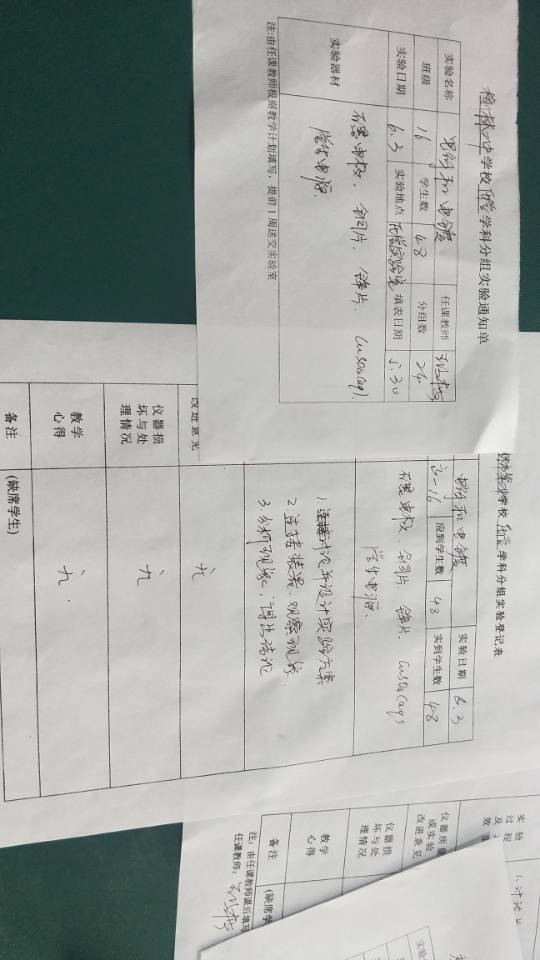 中学校化学学科分组实验通知单
实验名称 电解和电镀 任课教师
班级 16 学生数 48 分组数 24
实验日期 6.3 实验地点 化学实验室 填表日期 5.30
实验器材
石墨电极、铜片、锌片、CuSO4(aq).
学生电源.
注:由任课教师根据教学计划填写，提前1周送交实验室
学校化学学科分组实验登记表
电解和电镀 实验日期 6.3
应到学生数 48 实到学生数 48
石墨电极、铜片、锌片、CuSO4(aq)
学生电源.
讨论并设计实验方案
2.连接装置、观察现象
3.分析现象，得出结论
改进意见 无
仪器损坏与处理情况 无
教学心得 无.
备注 (缺席学生)
实验
过程
及
效
1.讨论
仪器质量
或实验
改进意见
仪器损
坏与处
理情况
教学
心得
备注 (缺席学
注：由任课教师课后填写
任课教师：